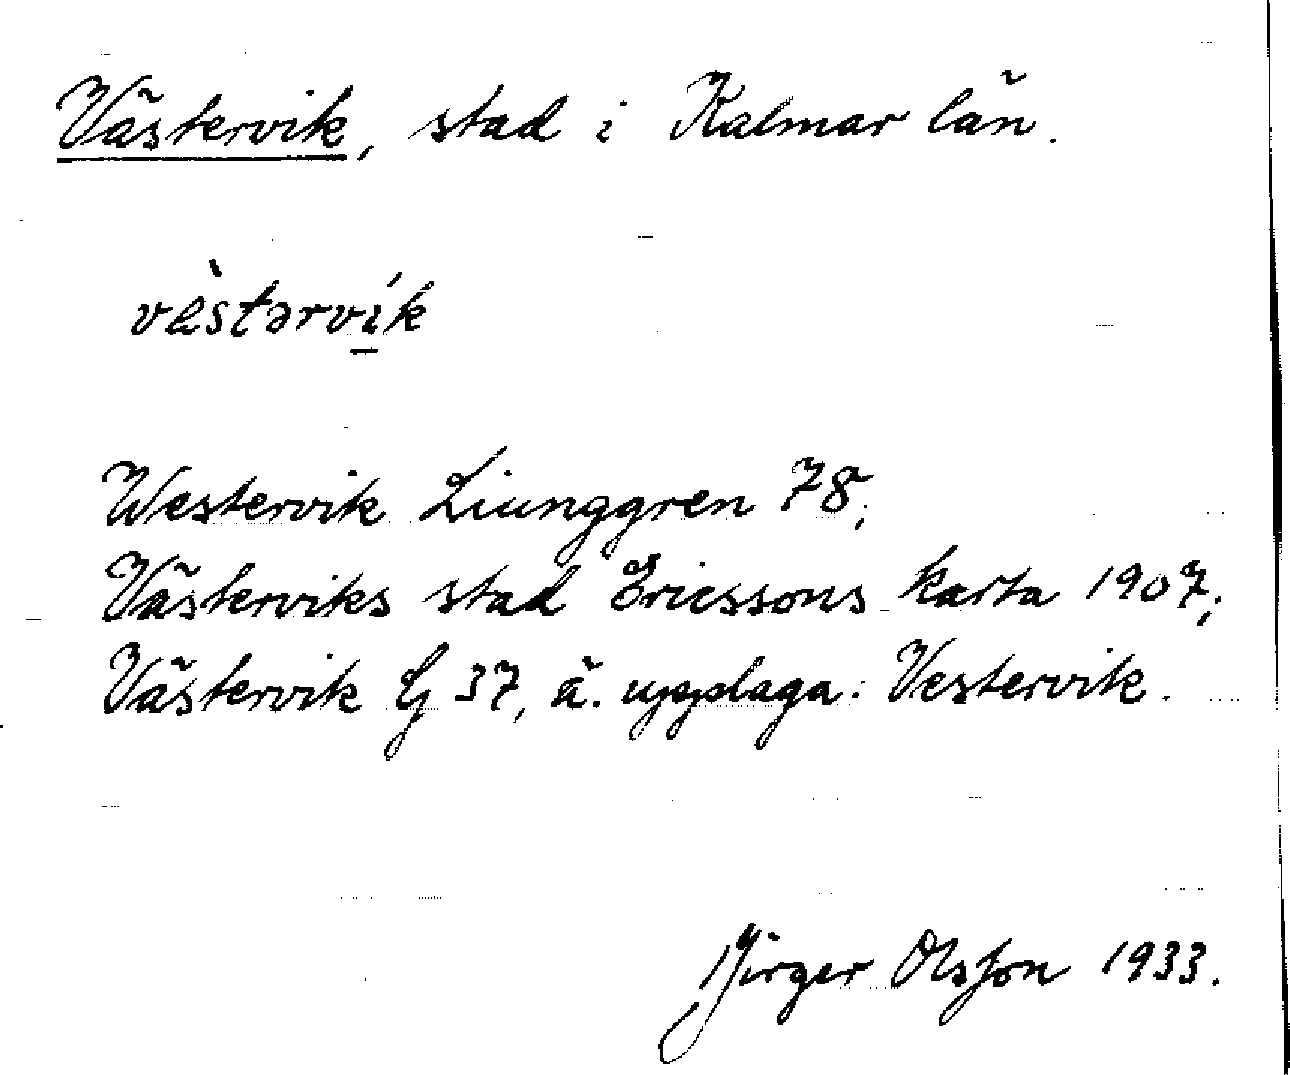 Västervik, stad i Kalmar län.
vèstərvík
Westervik Liunggren 78;
Västerviks stad Ericssons karta 1907;
Västervik G 37, ä. upplaga: Vestervik.
Birger Olsson 1933.